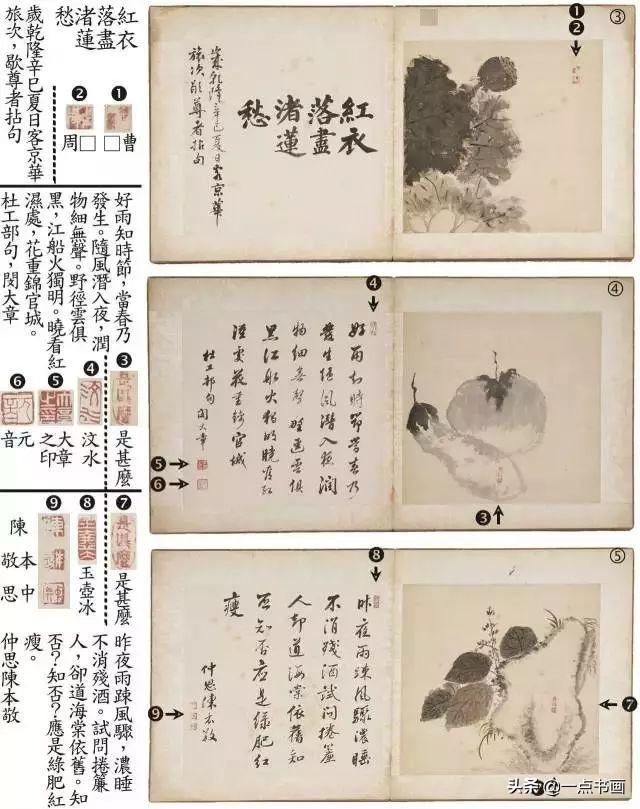 紅衣
落盡
渚蓮
愁
歲乾隆辛巳夏日客京華
旅次，歇尊者拈句
❶
曹□
❷
□周
好雨知時節，當春乃
發生。隨風潛入夜，潤
物細無聲。野徑雲俱
黑，江船火獨明。曉看紅
濕處，花重錦官城。
杜工部句，閔大章
❸
是甚麼
❹
汶水
❺
大章
之印
❻
元音
❼
是甚麼
❽
玉壺冰
❾
陳
本敬
中思
昨夜雨疎風驟，濃睡
不消殘酒。試問捲簾
人，卻道海棠依舊。知
否？知否？應是綠肥紅
瘦。
仲思陳本敬
③
❶
❷
紅衣
落盡
渚蓮
愁
歲乾隆辛巳夏日客京華
旅次歇尊者拈句
④
❹
好雨知時節當春乃
發生隨風潛入夜潤
物細無聲野徑雲俱
黑江船火獨明曉看紅
濕處花重錦官城
杜工部句閔大章
❺
❻
❸
⑤
❽
昨夜雨疎風驟濃睡
不消殘酒試問捲簾
人卻道海棠依舊知
否知否應是綠肥紅
瘦
仲思陳本敬
❾
❼
头条 @一点书画